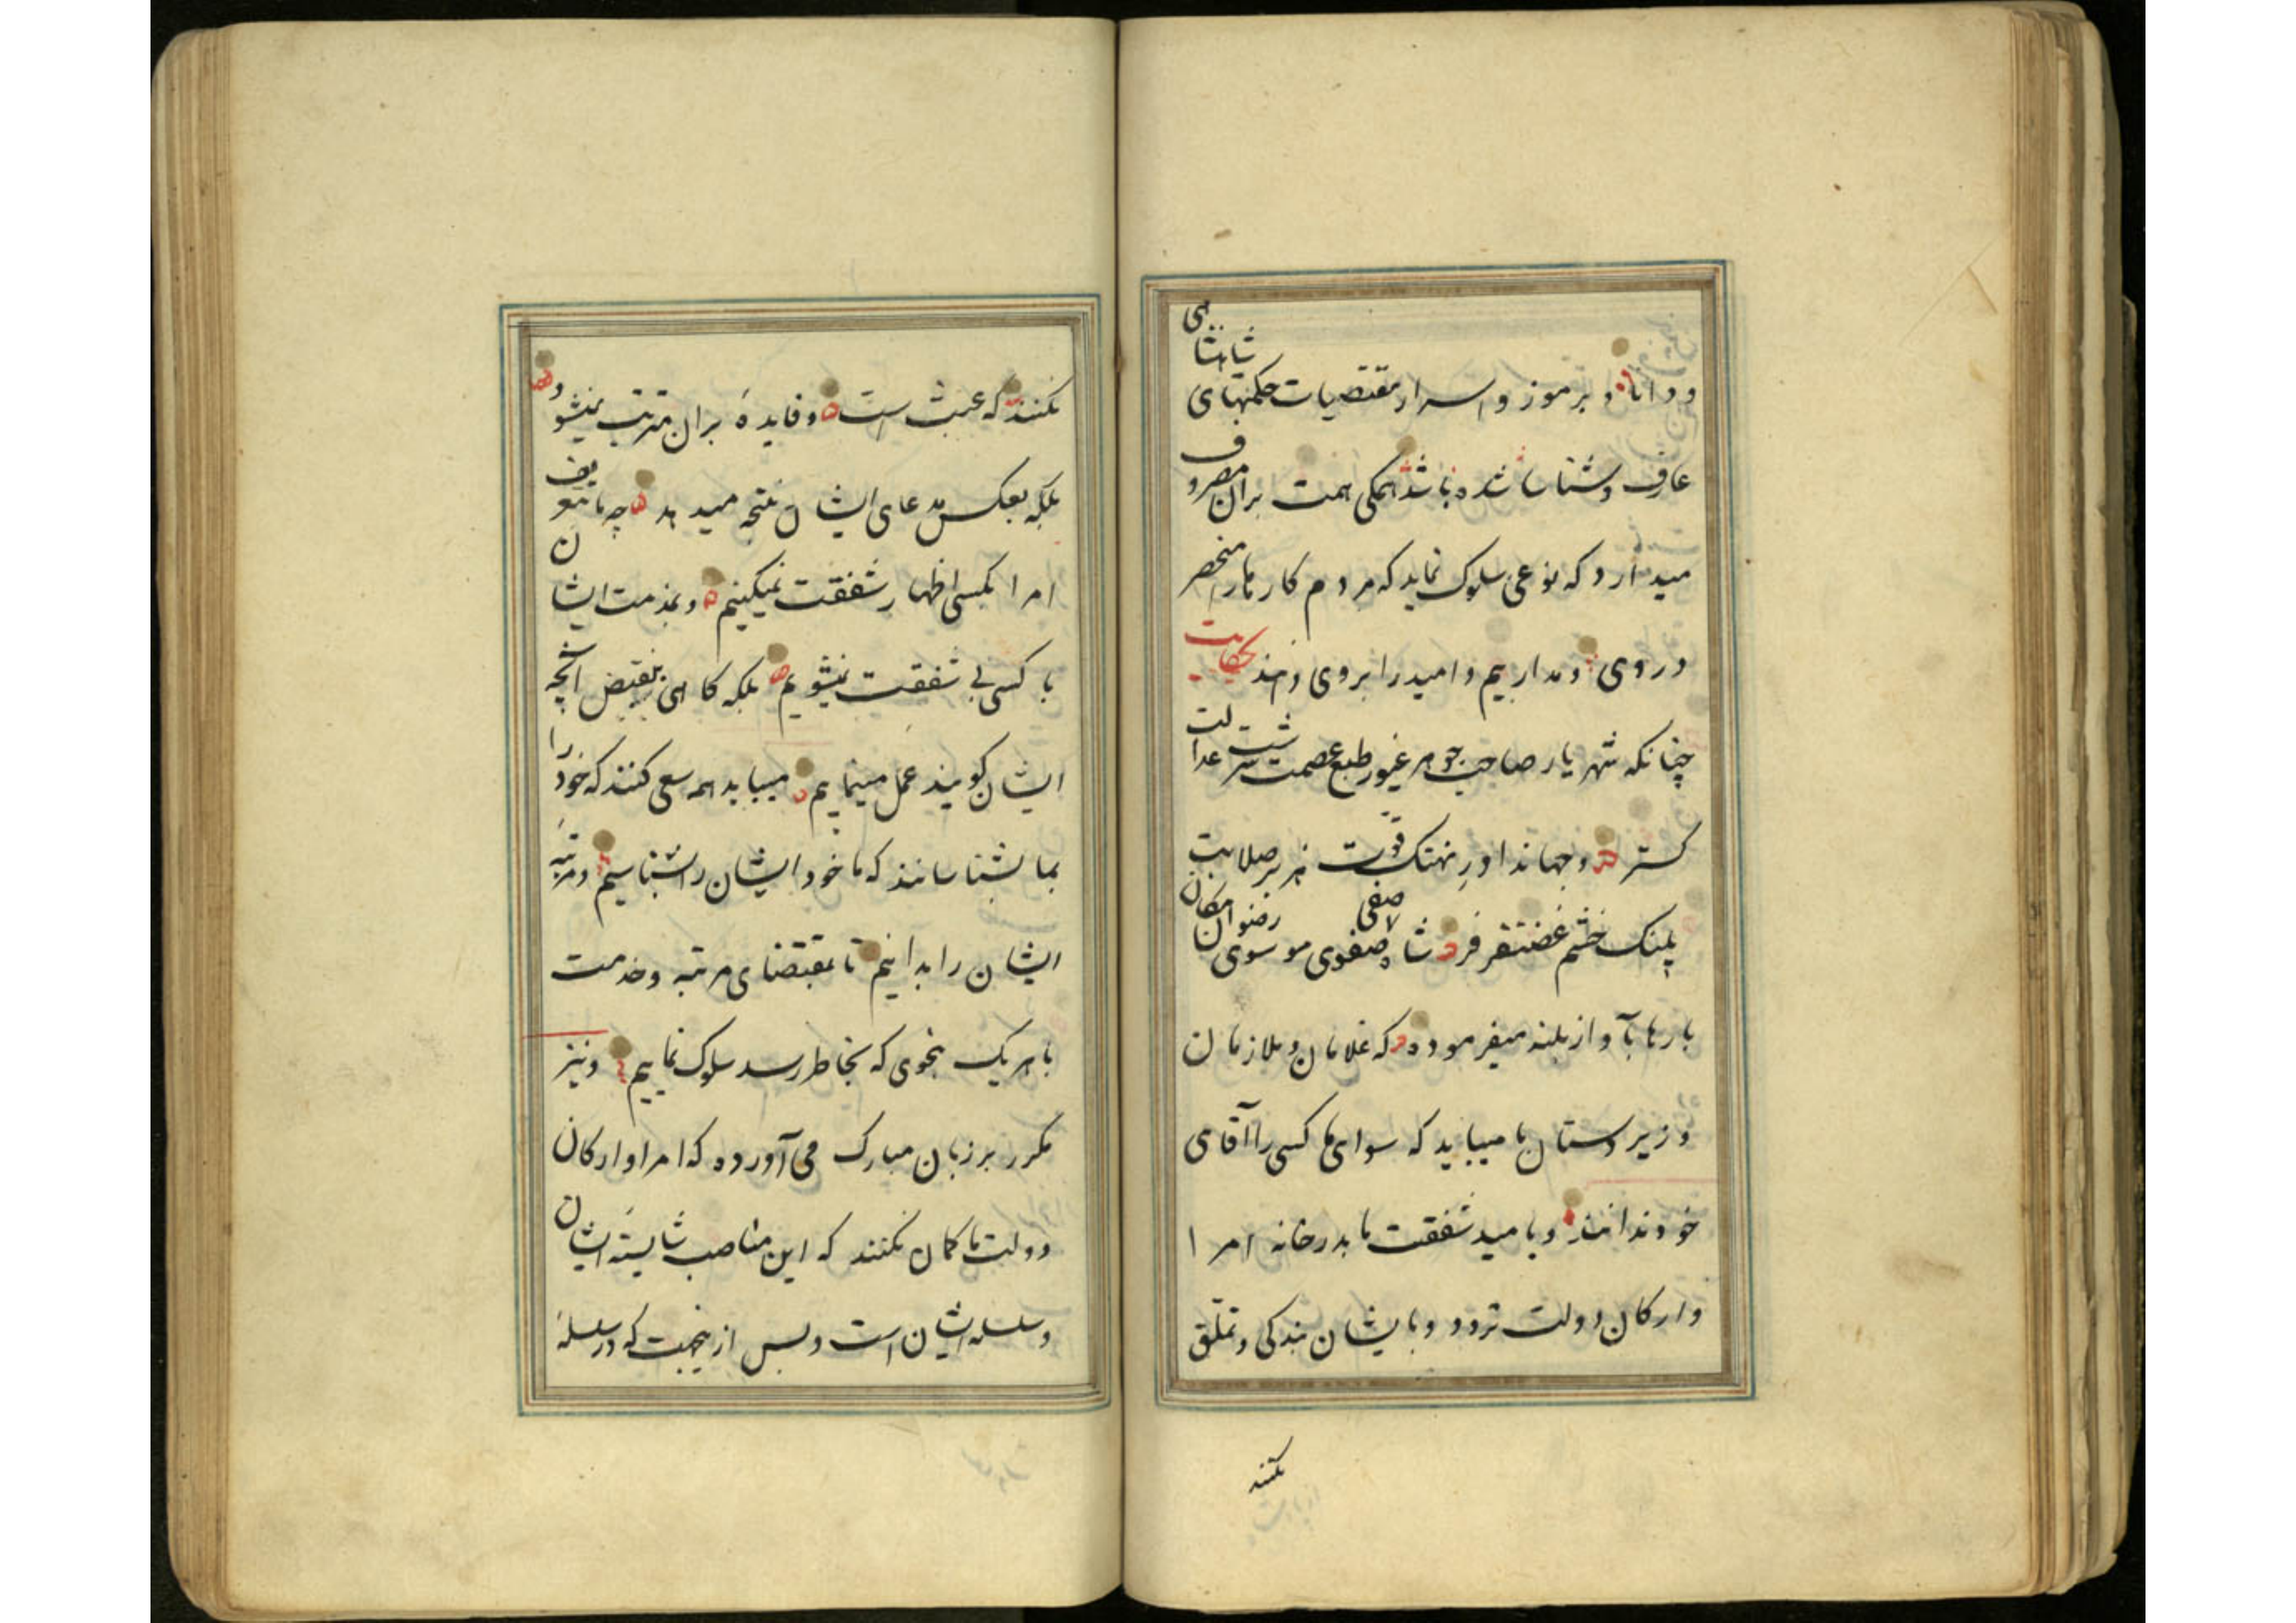 و دانا و بر موز و اسرار مقتضیات حکمتهای شاهنشاهی
عارف و شناسا شده باشد همکی همت بران مصروف
میدارد که نوعی سلوک نماید که مردم کار مارا منحصر
در وی و مداریم و امید را بروی و
حکایت
چنانکه شهریار صاحب جوهر غیور طبع عصمت سرشت عدالت
کستر و جهاندار نهنک قوت هزبر صلابت
پلنک خشم غضنفر فر شاه صفی صفوی موسوی رضوان مکان
بارها بآواز بلند میفرموده که غلامان و ملازمان
و زیردستان ما میباید که سوای ما کسی را آقای
خود ندانند و بامید شفقت ما بدرخانه امرا
و ارکان دولت تردد و بایشان بندکی و تملّق
نکنند
نکنند که عبث است و فایدهٔ بران مترتب نمیشود
بلکه بعکس مدعای ایشان نتیجه میدهد چه ما بتعریف
امرا بکسی اظهار شفقت نمیکنیم و بمذمت ایشان
با کسی بی شفقت نمیشویم بلکه کاهی بنقیض آنچه
ایشان کویند عمل مینماییم میباید همه سعی کنند که خود را
بما بشناسانند که ما خود ایشان را بشناسیم و مرتبهٔ
ایشان را بدانیم تا بمقتضای مرتبه و خدمت
با هر یک بنحوی که بخاطر رسد سلوک نماییم و نیز
مکرر بر زبان مبارک می آورده که امرا و ارکان
دولت ما کمان نکنند که این مناصب شایستهٔ ایشان
و سلسله ایشان است و بس ازینجهت که در سلسلهٔ